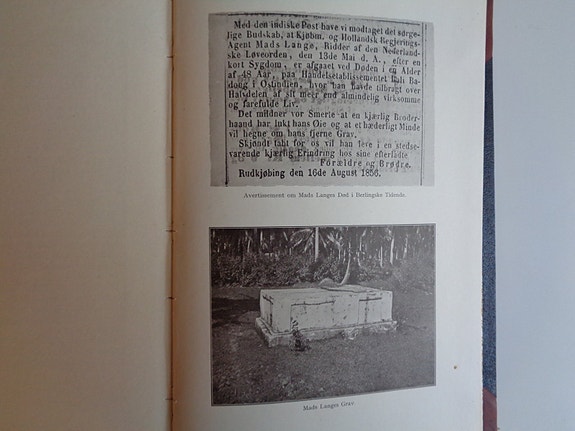 Med den indiske Post have vi modtaget det sørge-
lige Budskab, at Kjøbm. og Hollandsk Regjerings-
Agent Mads Lange, Ridder af den Nederland-
ske Løveorden, den 13de Mai d. A., efter en
kort Sygdom, er afgaaet ved Døden i en Alder
af 48 Aar, paa Handelsetablissementet Bali Ba-
dong i Ostindien, hvor han havde tilbragt over
Halvdelen af sit meer end almindelig virksomme
og farefulde Liv.
Det mildner vor Smerte at en kjærlig Broder-
haand har lukt hans Øie og at et hæderligt Minde
vil hegne om hans fjerne Grav.
Skjøndt tabt for os vil han leve i en stedse-
varende kjærlig Erindring hos sine efterladte
Forældre og Brødre.
Rudkjøbing den 16de August 1856.
Avertissement om Mads Langes Død i Berlingske Tidende.
Mads Langes Grav